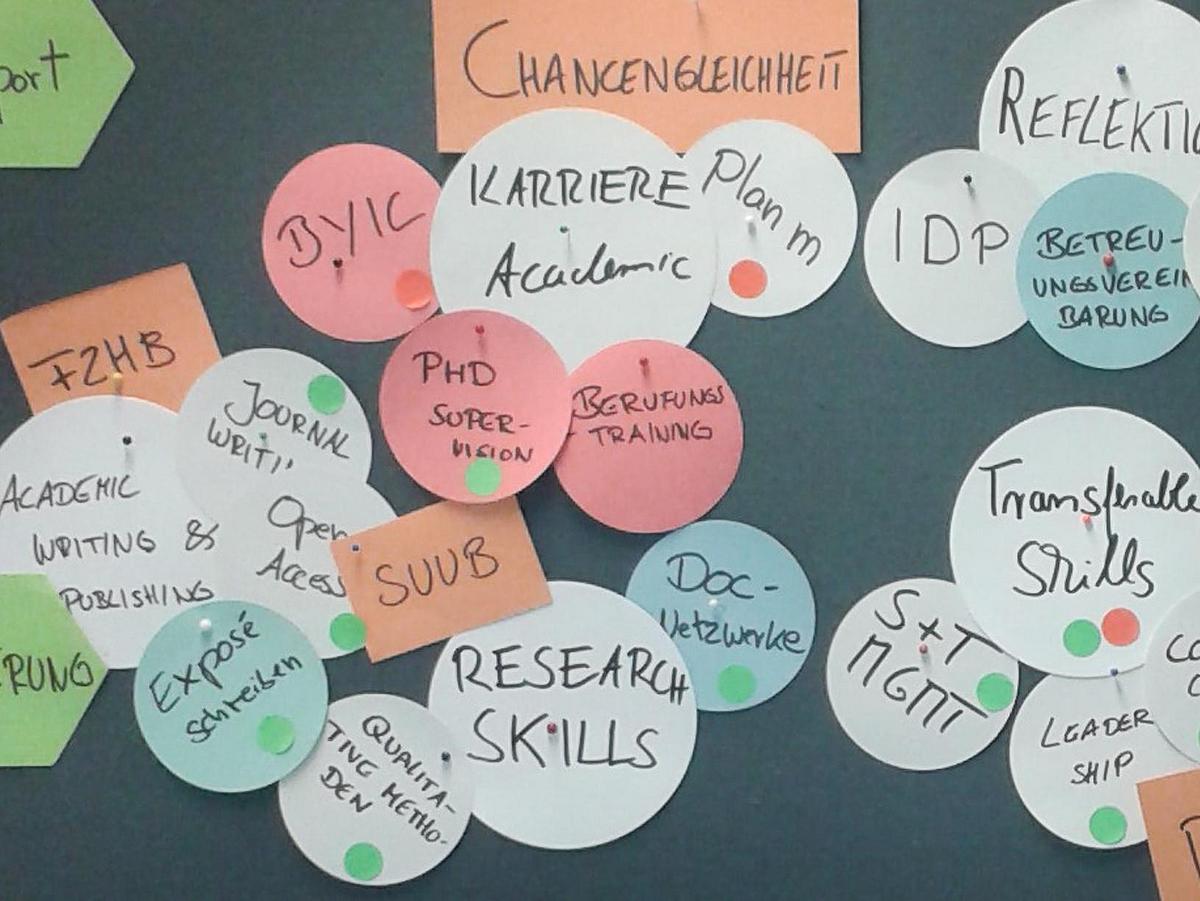 port
CHANCENGLEICHHEIT
REFLEKTI
KARRIERE
Academic
Plan m
BYIC
IDP
BETREU-
UNGSVEREIN
BARUNG
FZHB
JOURNAL
WRITI
PHD
SUPER-
VISION
BERUFUNGS
TRAINING
ACADEMIC
WRITING &
PUBLISHING
Open
Access
SUUB
Doc-
Netzwerke
Transferable
Skills
RUNG
Exposé
schreiben
RESEARCH
SKILLS
S+T
MGMT
QUALITA-
TIVE METHO-
DEN
LEADER
SHIP